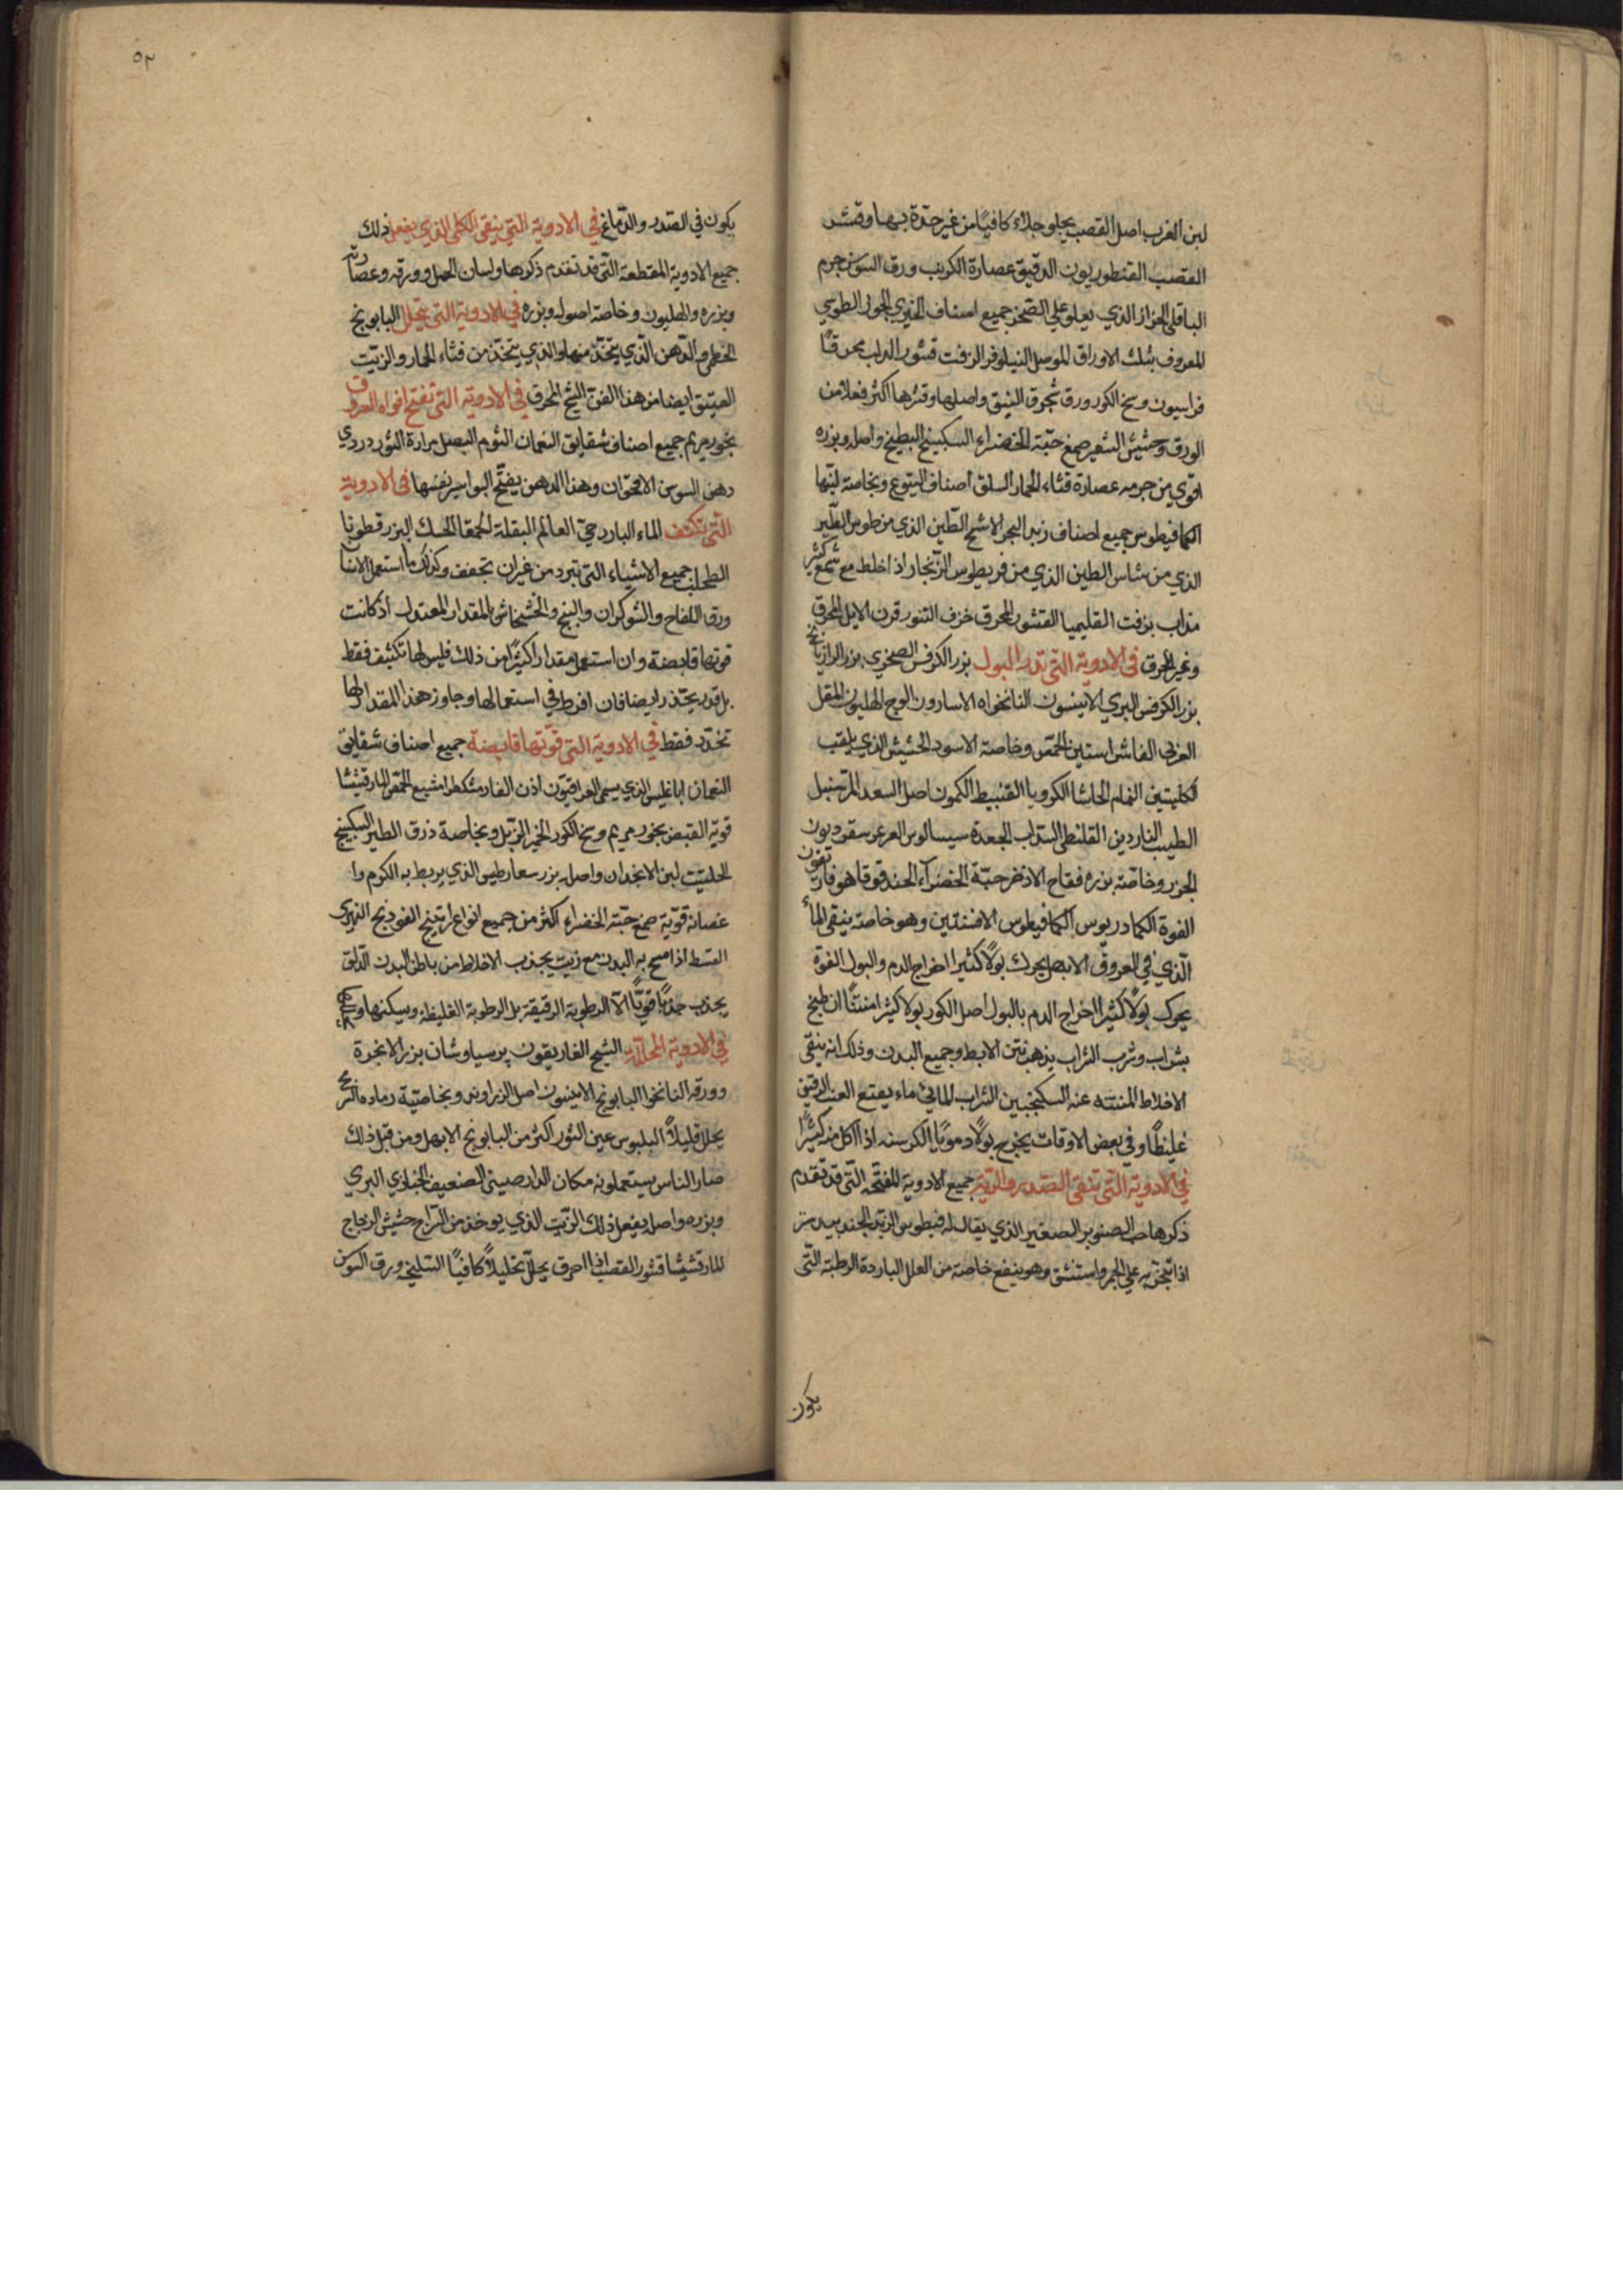 لبن الغرب اصل القصب يجلو جلاء كافيًا من غير حدة بها وقشر
القصب القنطوريون الدقيق عصارة الكرنب ورق السوسن جرم
الباقلى الحزاز الذي يعلو على الصخر جميع اصناف الخيري الجولى الطوسي
المعروف بتلك الاوراق الموصل النيلوفر الزفت قشور الدلب محرقًا
فراسيون وسخ الكور ورق شجرة النبق واصلها وقشرها اكثر فعلا من
الورق وحشيش الشعير صمغ حبّة الخضراء السكبينج البطيخ واصله وبزره
اقوى من جرمه عصارة قثاء الحمار السلق اصناف اليتوع وبخاصة لبنها
الكمافيطوس جميع اصناف زبد البحر الاشج الطين الذي من طوس الطير
الذي من شاس الطين الذي من قريطوس الزنجار اذا خلط مع شمع كثير
مذاب بزفت القليميا القشور المحرق خزف التنور قرن الايل المحرق
وغير المحرق فى الادوية التى تدر البول بزر الكرفس الصخري بزر الرازيانج
بزر الكرفس البري الانيسون النانخواه الاسارون الوج الهليون المقل
العربى الفاشراستين الحمّص وخاصة الاسود الحشيش الذي يلقب
كليتين النمام الحاشا الكرويا القنبيط الكمون اصل السعد الزنجبيل
الطيب الناردين القلنطى السذاب الجعدة سيساليوس العرعر سقورديون
الجزر وخاصّة بزره فقاح الاذخر حبّة الخضراء الحندقوقا هوفاريقون
الفوة الكمادريوس الكمافيطوس الافسنتين وهو خاصة ينقى الماء
الّذي فى العروق الابهل يحرك بولًا كثيرا اخراج الدم والبول الفوّة
يحرك بولًا كثيرا اخراج الدم بالبول اصل الكور بولا كثيرا منتنًا ان طبخ
بشراب وشرب الشراب يذهب نتن الابط وجميع البدن وذلك انه ينقى
الاخلاط المنتنه عنه السكنجبين الشراب المائى ماء يقتع العنب الرقيق
غليظًا وفي بعض الاوقات يخرج بولًا دمويًا الكرسنه اذا اكل منه كثيرًا
في الادوية التّى تنقى الصدر والرية جميع الادوية المفتّحه التّى قد تقدم
ذكرها حب الصنوبر الصغير الذي يقال له فيطويس الزبد الجندبيدستر
اذا تبخر به على الجمر واستنشق وهو ينفع خاصة من العلل الباردة الرطبة التّى
يكون
٥٢
يكون في الصدر والدّماغ في الادوية التي ينقى الكلى الذي يفعل ذلك
جميع الادوية المقطعة التّى قد تقدم ذكرها ولسان الحمل وورقه وعصارته
وبزره والهليون وخاصة اصوله وبزره في الادوية التي تحلل البابونج
الخطمى والدّهن الّذي يتخّذ منها والذي يتخّذ من قثاء الحمار والزيت
العتيق ايضا من هذا الفن الشيح المحرق في الادوية التى تفتح افواه العروق
بخور مريم جميع اصناف شقايق النعمان الثوم البصل مرارة الثور دردي
دهن السوسن الاقحوان وهذا الدهن يفتّح البواسير نفسها فى الادوية
التّى تكثف الماء البارد حى العالم البقلة الحمقا الحسك البزر قطونا
الطحلب جميع الاشياء التى تبرد من غير ان تجفف وكذلك ما استعمل الانسان
ورق اللفاح والشوكران والبنج والخشخاش بالمقدار المعتدل اذ كانت
قوتها قابضة وان استعمل مقدارا كثيرًا من ذلك فليس لها تكثيف فقط
بل قد يخذر ايضا فان افرط فى استعمالها وجاوز هذا المقدار لها
تخدّر فقط في الادوية التى قوّتها قابضة جميع اصناف شقايق
النعمان اناغليس الذي يسمى العراقيون اذن الفار مشكطرامشيع الحمّص المارقشيثا
قوية القبض بخور مريم وسخ الكور الخمير الزبل وبخاصة ذرق الطير السكبينج
الحلتيت لبن الانجدان واصله بزر سعارطيس الذي يربط به الكرم وا
غصانه قويّة صمغ حبّة الخضراء اكثر من جميع انواع راتينج الفوذنج النهري
القسط اذا مسح به البدن مع زيت يجذب الاخلاط من باطن البدن الدّبق
يجذب جذبًا قويًّا الّا الرطوبة الرقيقة بل الرطوبة الغليظة ويسكنها
في الادوية المحلّلة الشيح الغاريقون پرسياوشان بزر الانجرة
وورقه النانخوا البابونج الانيسون اصل الزراوند وبخاصّية رماده
يحلل قليلًا البلبوس عين الثور اكثر من البابونج الابهل ومن قبل ذلك
صار الناس يستعملونه مكان الدارصينى الضعيف الخبازي البري
وبزره واصله يفعل ذلك الزّيت الذي يوخذ من الرّاج حشيش الزجاج
المارقشيثا قشور القصب اذا احرق يحلّل تحليلًا كافيًا السليخه ورق السوسن